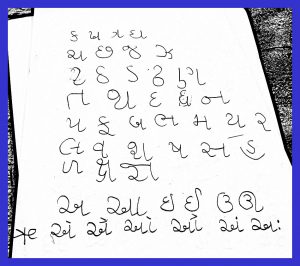 ક ખ ગ ઘ
ચ છ જ ઝ
ટ ઠ ડ ઢ ણ
ત થ દ ધ ન
પ ફ બ ભ મ ય ર
લ વ શ ષ સ હ
ળ ક્ષ જ્ઞ
અ આ ઇ ઈ ઉ ઊ
ઋ એ ઐ ઓ ઔ અં અઃ